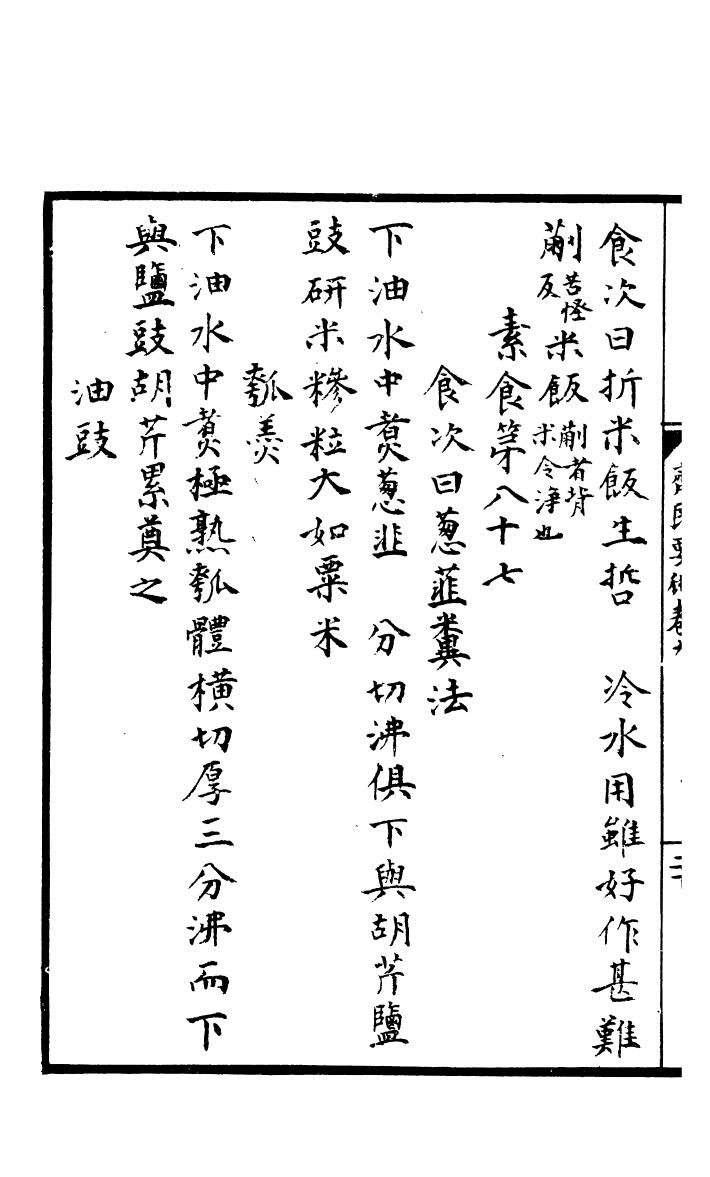 食次曰折米飯生晢　冷水用雖好作甚難
䈼苦怪反米飯䈼者背米令淨也
素食第八十七
食次曰葱韮羹法
下油水中煑葱韭　分切沸俱下與胡芹鹽
豉研米糝粒大如粟米
瓠羹
下油水中煑極熟瓠體橫切厚三分沸而下
與鹽豉胡芹累奠之
油豉
齊民要術卷九